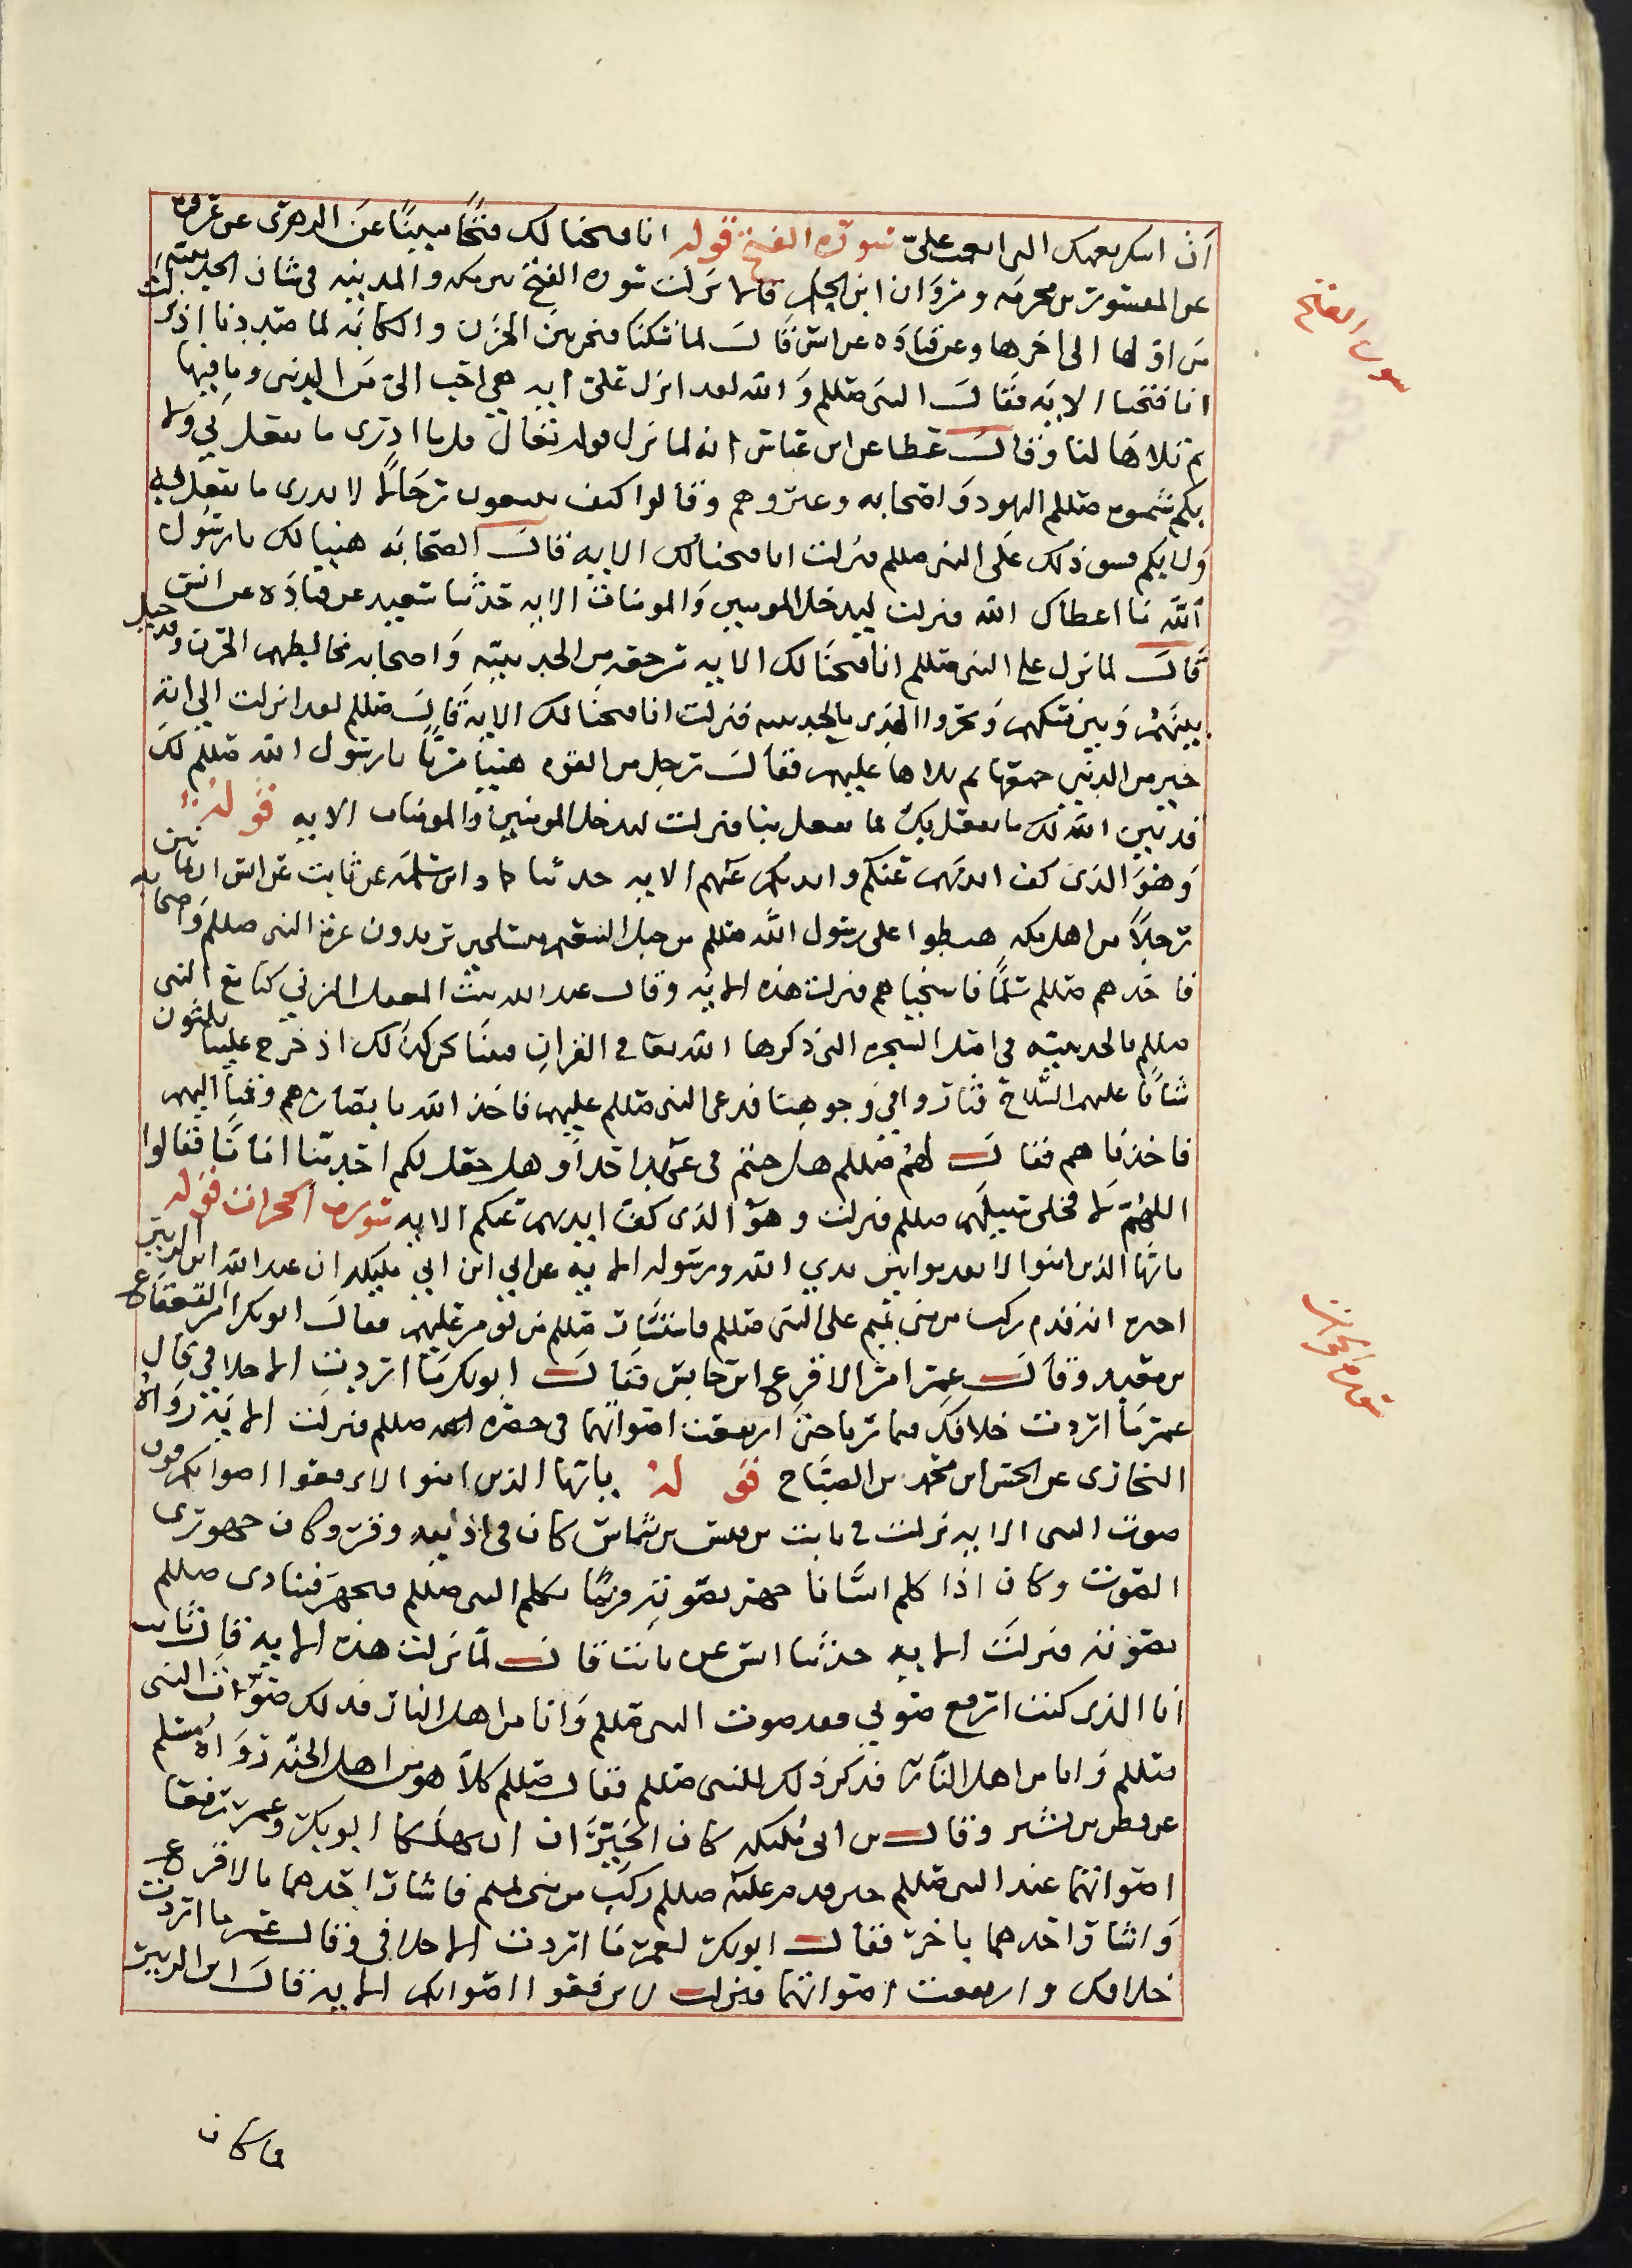 ان اسكر نعمتك التي انعمت علي سورة الفتح قوله انا فتحنا لك فتحًا مبينًا عن الزهري عن عروة
عن المسور بن مخرمه ومروان ابن الحكم قالا نزلت سوره الفتح بين مكه والمدينه في شان الحديبيه
من اولها الى اخرها وعن قتاده عن انس قال لما نسكنا فنحن بين الحزن والكابه لما صددنا اذ نزلت
انا فتحنا الايه فقال النبي صللم والله لقد انزل علي ايه هي احب الي من الدنيا وما فيها
ثم تلاها لنا وقال عطا عن ابن عباس انه لما نزل قوله تعالى وما ادرى ما يفعل بي ولا
بكم اليهود وقالوا كيف رجلا لا يدرى ما يفعل به
ولا بكم ذلك على النبي صللم فنزلت انا فتحنا لك الايه قال الصحابه هنيا لك يا رسول
الله ما اعطاك الله فنزلت ليدخل المومنين والمومنات الايه حدثنا سعيد عن قتاده عن انس
قال لما نزل على النبي صللم انا فتحنا لك الايه مرجعه من الحديبيه واصحابه مخالطهم الحزن وقد حيل
بينهم وبين نسكهم ونحروا الهدى بالحديبيه فنزلت انا فتحنا لك الايه قال صللم لقد انزلت الي ايه
خير من الدنيا جميعها ثم تلاها عليهم فقال رجل من القوم هنيا مريا يا رسول الله صللم لك
قد بين الله لك ما يفعل بك فما يفعل بنا فنزلت ليدخل المومنين والمومنات الايه قوله
وهو الذى كف ايديهم عنكم وايديكم عنهم الايه حدثنا حماد ابن سلمه عن ثابت عن انس ان ثمانين
رجلًا من اهل مكه هبطوا على رسول الله صللم من جبل التنعيم متسلحين يريدون غرة النبي صللم واصحابه
فاخذهم صللم سلمًا فاستحياهم فنزلت هذه الايه وقال عبد الله بن المغفل المزني كنا مع النبي
صللم بالحديبيه في اصل الشجره التي ذكرها الله تعا في القران فبينا نحن كذلك اذ خرج علينا ثلثون
شابًا عليهم السلاح فثاروا في وجوهنا فدعى النبي صللم عليهم فاخذ الله بابصارهم وقمنا اليهم
فاخذناهم فقال لهم صللم هل جئتم في عهد احد او هل جعل لكم احد منا امانًا فقالوا
اللهم لا فخلى سبيلهم صللم فنزلت وهو الذى كف ايديهم عنكم الايه سورة الحجرات قوله
يايها الذين امنوا لا تقدموا بين يدي الله ورسوله الايه عن ابي ابن ابي مليكه ان عبد الله ابن الزبير
اخبره انه قدم ركب من بني تميم على النبي صللم فقال ابوبكر امر القعقاع
بن معبد وقال عمر امر الاقرع ابن حابس فقال ابوبكر ما اردت الا خلافي قال
عمر ما اردت خلافك فتماريا حتى ارتفعت اصواتهما في حضرته صللم فنزلت الايه رواه
البخارى عن الحسن ابن محمد بن الصباح قوله يايها الذين امنوا لا ترفعوا اصواتكم فوق
صوت النبي الايه نزلت في ثابت بن قيس بن شماس كان في اذنيه وقر وكان جهورى
الصوت وكان اذا كلم انسانا جهر بصوته وربما يكلم النبي صللم فيجهر فيتاذى صللم
بصوته فنزلت الايه حدثنا انس عن ثابت قال لما نزلت هذه الايه قال ثابت
انا الذى كنت ارفع صوتي فوق صوت النبي صللم وانا من اهل النار فذلك صوت النبي
صللم وانا من اهل النار فذكر ذلك للنبي صللم فقال صللم كلا هو من اهل الجنه رواه مسلم
عن قطن بن نسير وقال بن ابي مليكه كاد الخيران ان يهلكا ابوبكر وعمر رفعا
اصواتهما عند النبي صللم حين قدم عليه صللم ركب من بني تميم فاشار احدهما بالاقرع
واشار احدهما باخر فقال ابوبكر لعمر ما اردت الا خلافي وقال عمر ما اردت
خلافك وارتفعت اصواتهما فنزلت لا ترفعوا اصواتكم الايه قال ابن الزبير
فما كان
سورة الفتح
سورة الحجرات